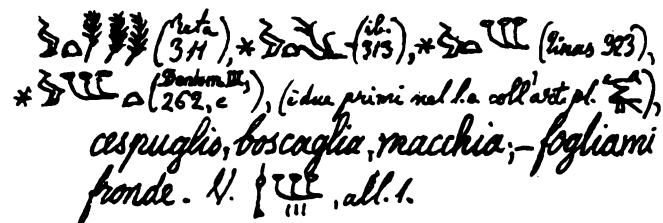 (reta 311), * (ib. 313), * (Linas 923),
* (Dendem. III, 262, c), (i due primi nel l.a coll' art. pl. ),
cespuglio, boscaglia, macchia; – fogliami
fronde. V. , all. 1.